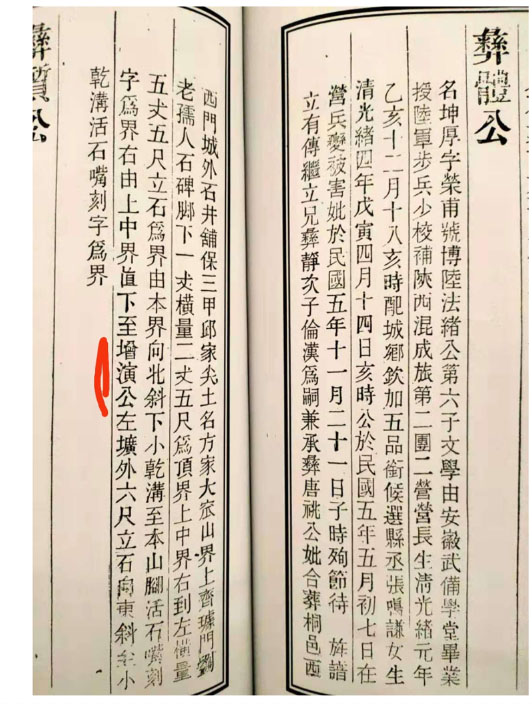 彝體公
名坤厚字榮甫號博陸法緒公第六子文學由安徽武備學堂畢業
授陸軍步兵少校補陝西混成旅第二團二營營長生清光緒元年
乙亥十二月十八亥時配城鄉欽加五品銜候選縣丞張鳴謙女生
清光緒四年戊寅四月十四日亥時公於民國五年五月初七日在
營兵變被害妣於民國五年十一月二十一日子時殉節待 旌譜
立有傳繼立兄彝靜次子倫漢爲嗣兼承彝唐祧公妣合葬桐邑西
西門城外石井舖保三甲邱家尖土名方家大山界上齊璩門劉
老孺人石碑脚下一丈橫量二丈五尺爲頂界上中界右到左橫量
五丈五尺立石爲界由本界向北斜下小乾溝至本山腳活石嘴刻
字爲界右由上中界直下至增演公左壙外六尺立石向東斜至小
乾溝活石嘴刻字爲界
彝質公